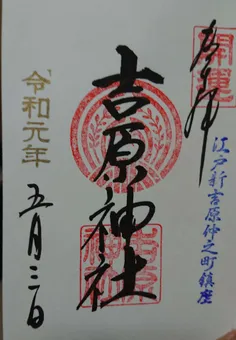 開運
奉拝
江戸新吉原仲之町鎮座
吉原神社
吉原神社
令和元年
五月三日